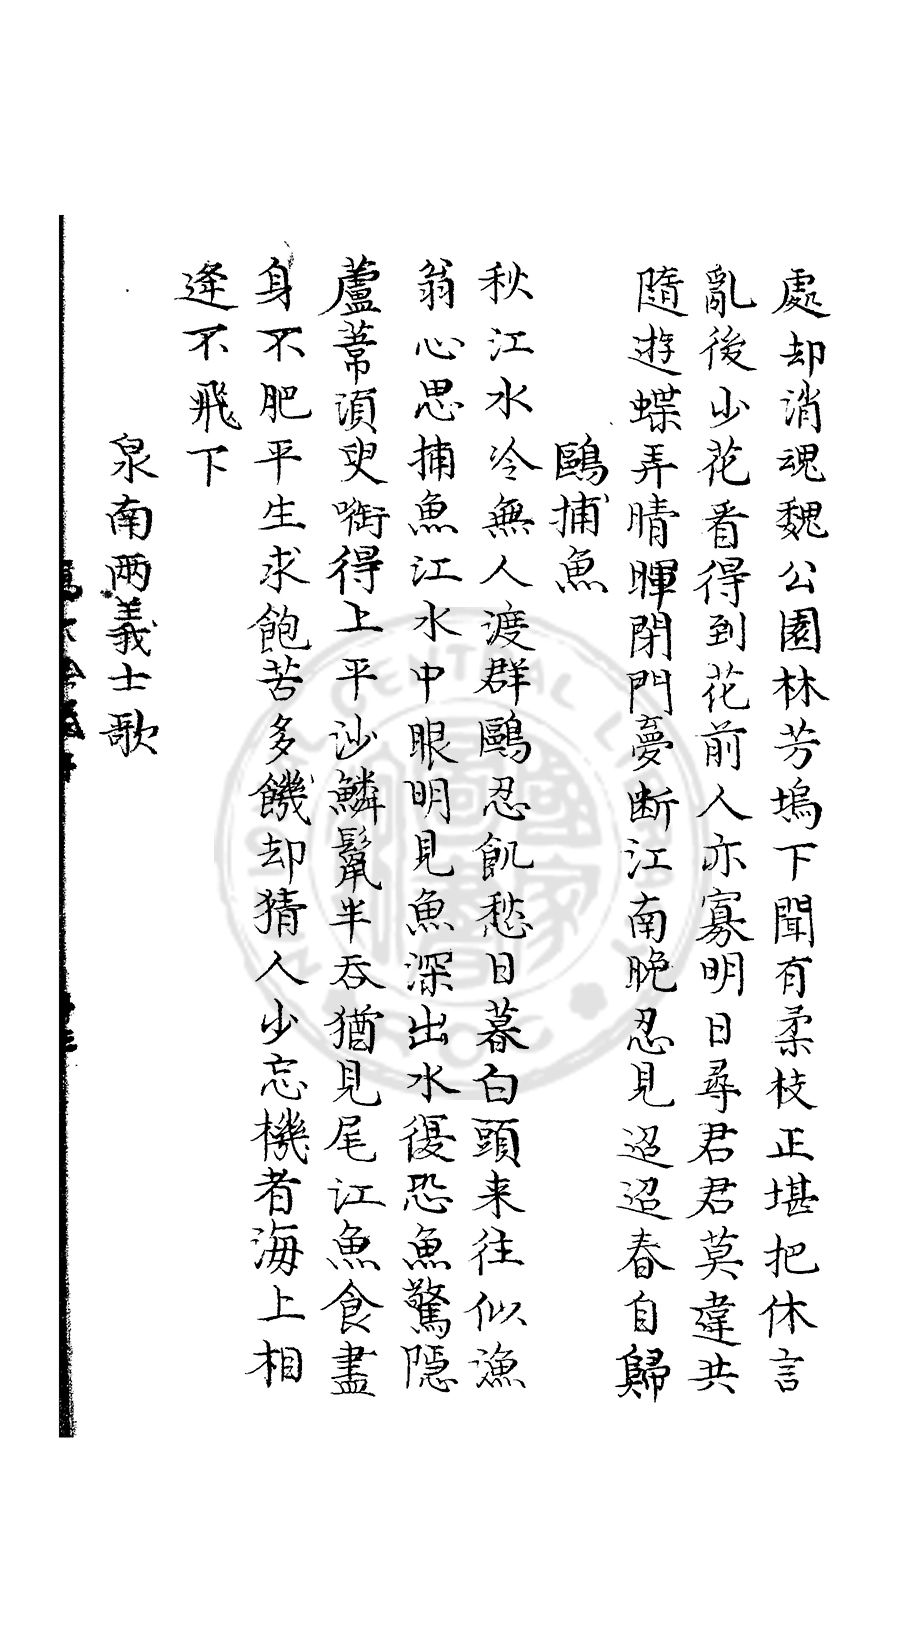 處却消魂魏公園林芳塢下聞有柔枝正堪把休言
亂後少花看得到花前人亦寡明日尋君君莫違共
隨遊蝶弄晴暉閉門夢斷江南晚忍見迢迢春自歸
鷗捕魚
秋江水冷無人渡群鷗忍飢愁日暮白頭来往似漁
翁心思捕魚江水中眼明見魚深出水復恐魚驚隱
蘆葦須臾啣得上平沙鱗鬣半吞猶見尾江魚食盡
身不肥平生求飽苦多饑却猜人少忘機者海上相
逢不飛下
泉南兩義士歌